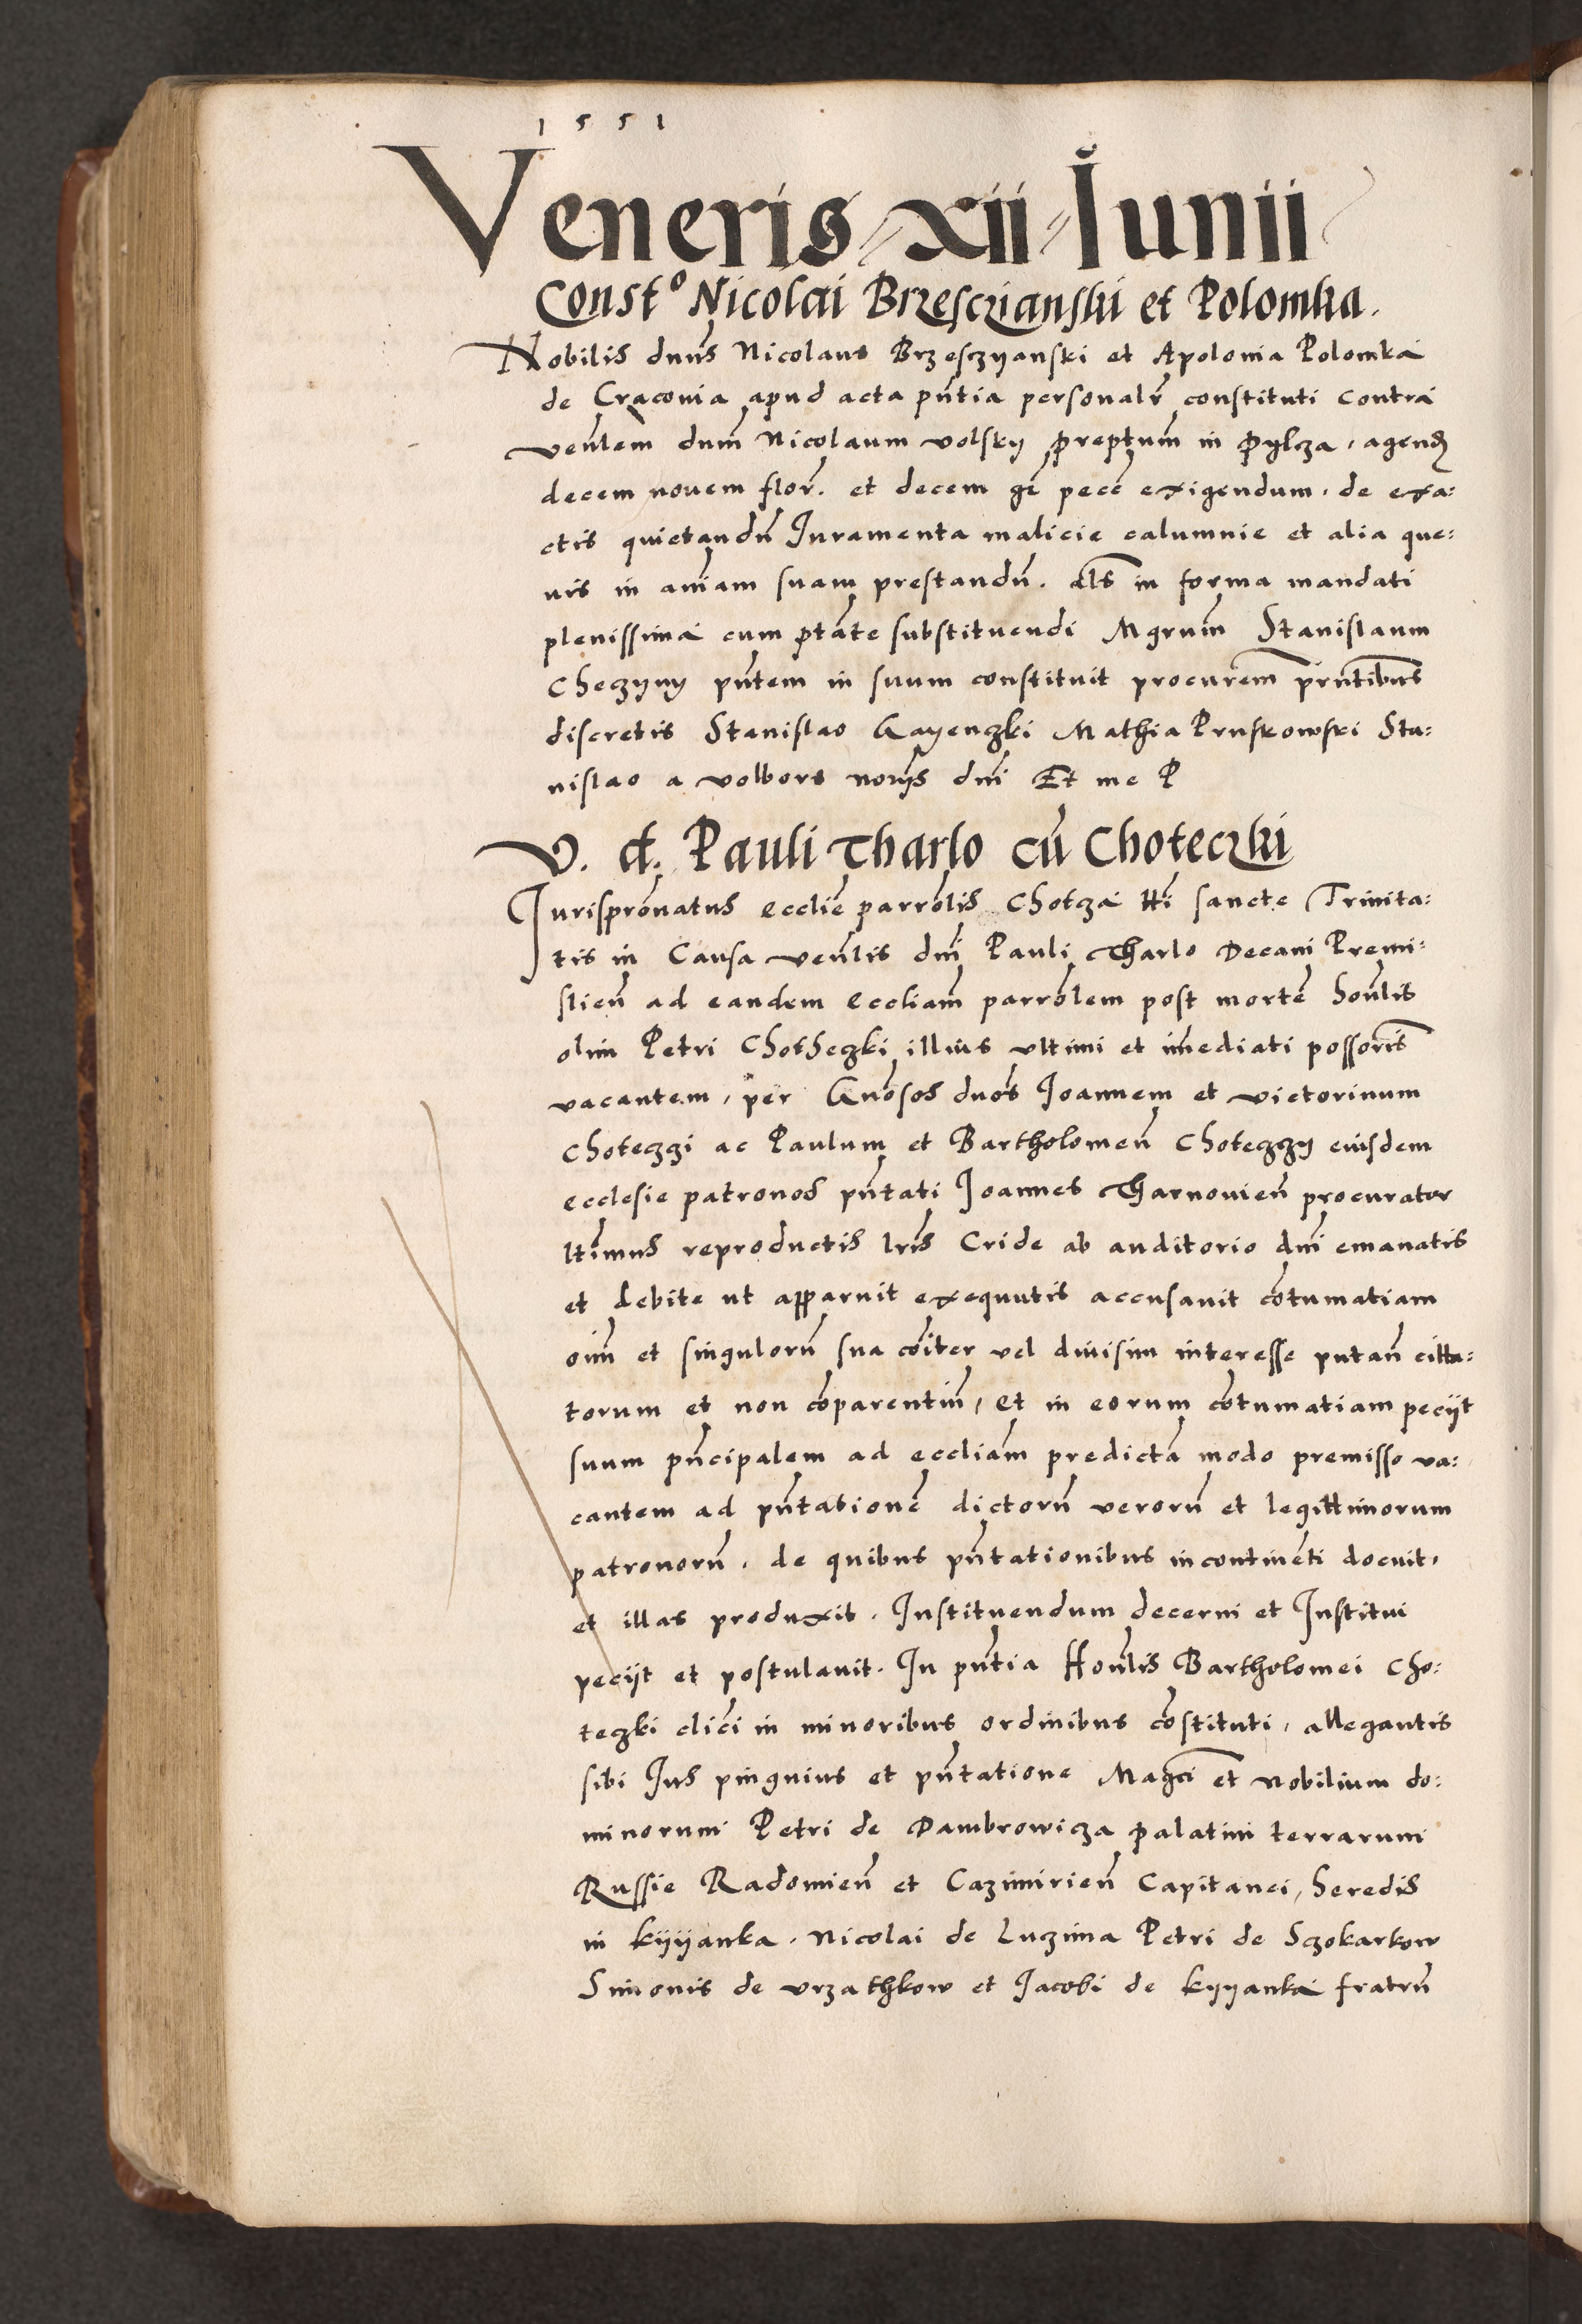 1551
Veneris xii Junii
Const° Nicolai Brzesczianski et Polomka.
Nobilis dnus Nicolaus Brzesczyanski et Apolonia Polomka
de Craconia apud acta pñtia personalr̃ constituti contra
venłem dnm̃ Nicolaum volsky preptum̃ in Pylcza, agend
decem novem flor̃. et decem gr̃ pecc̃ exigendum, de exa:
ctis quietandũ Juramenta malicie calumnie et alia que:
uis in aniam suam prestandũ. als in forma mandati
plenissima cum ptãte substituendi Mgrum̃ Stanislaum
Checzyny pñtem in suum constituit procurem̃ prñtibus
discretis Stanislao Gayenczki Mathia Pruskowski Sta:
nislao a volbors norys dnĩ Et me P
V. d. Pauli Tharlo cũ Choteczki
Jurisprõnatus ecclie parrõlis Chotcza tti sancte Trinita:
tis in Causa venłis dnĩ Pauli Tharlo Decani Premi:
slien̄ ad eandem eccliam̃ parrõlem post mortẽ honłis
olim Petri Chotheczki illius ultimi et im̃ediati possoris
vacantem, per Gnõsos dnõs Joannem et victorinum
choteczzi ac Paulum et Bartholomeũ Choteczzy eiusdem
ecclesie patronos pñtati Joannes Tharnovieñ procurator
ltimus reproductis lrĩs Cride ab auditorio dnĩ emanatis
et debite ut apparuit exequutis accusavit cõtumatiam
oim̃ et singulorũ sua cõiter vel divisim interesse putañ citta:
torum et non cõparentiũ, et in eorum cõtumatiam peciit
suum pñcipalem ad eccliam̃ predictã modo premisso va:
cantem ad pñtationẽ dictorũ verorũ et legittimorum
patronorũ. de quibus pñtationibus incontinẽti docuit,
et illas produxit. Instituendum decerni et Institui
peciit et postulavit. In pñtia Honłis Bartholomei Cho:
teczki clici in minoribus ordinibus cõstituti, allegantis
sibi Jus pinguius et pñtatione Magci et nobilium do:
minorum Petri de Dambrowicza palatini terrarum
Russie Radomieñ et Cazimirieñ Capitanei, heredis
in kyyanka. Nicolai de Luczima Petri de Sczokarkow
Simonis de vrzathkow et Jacobi de kyyanka fratrũ